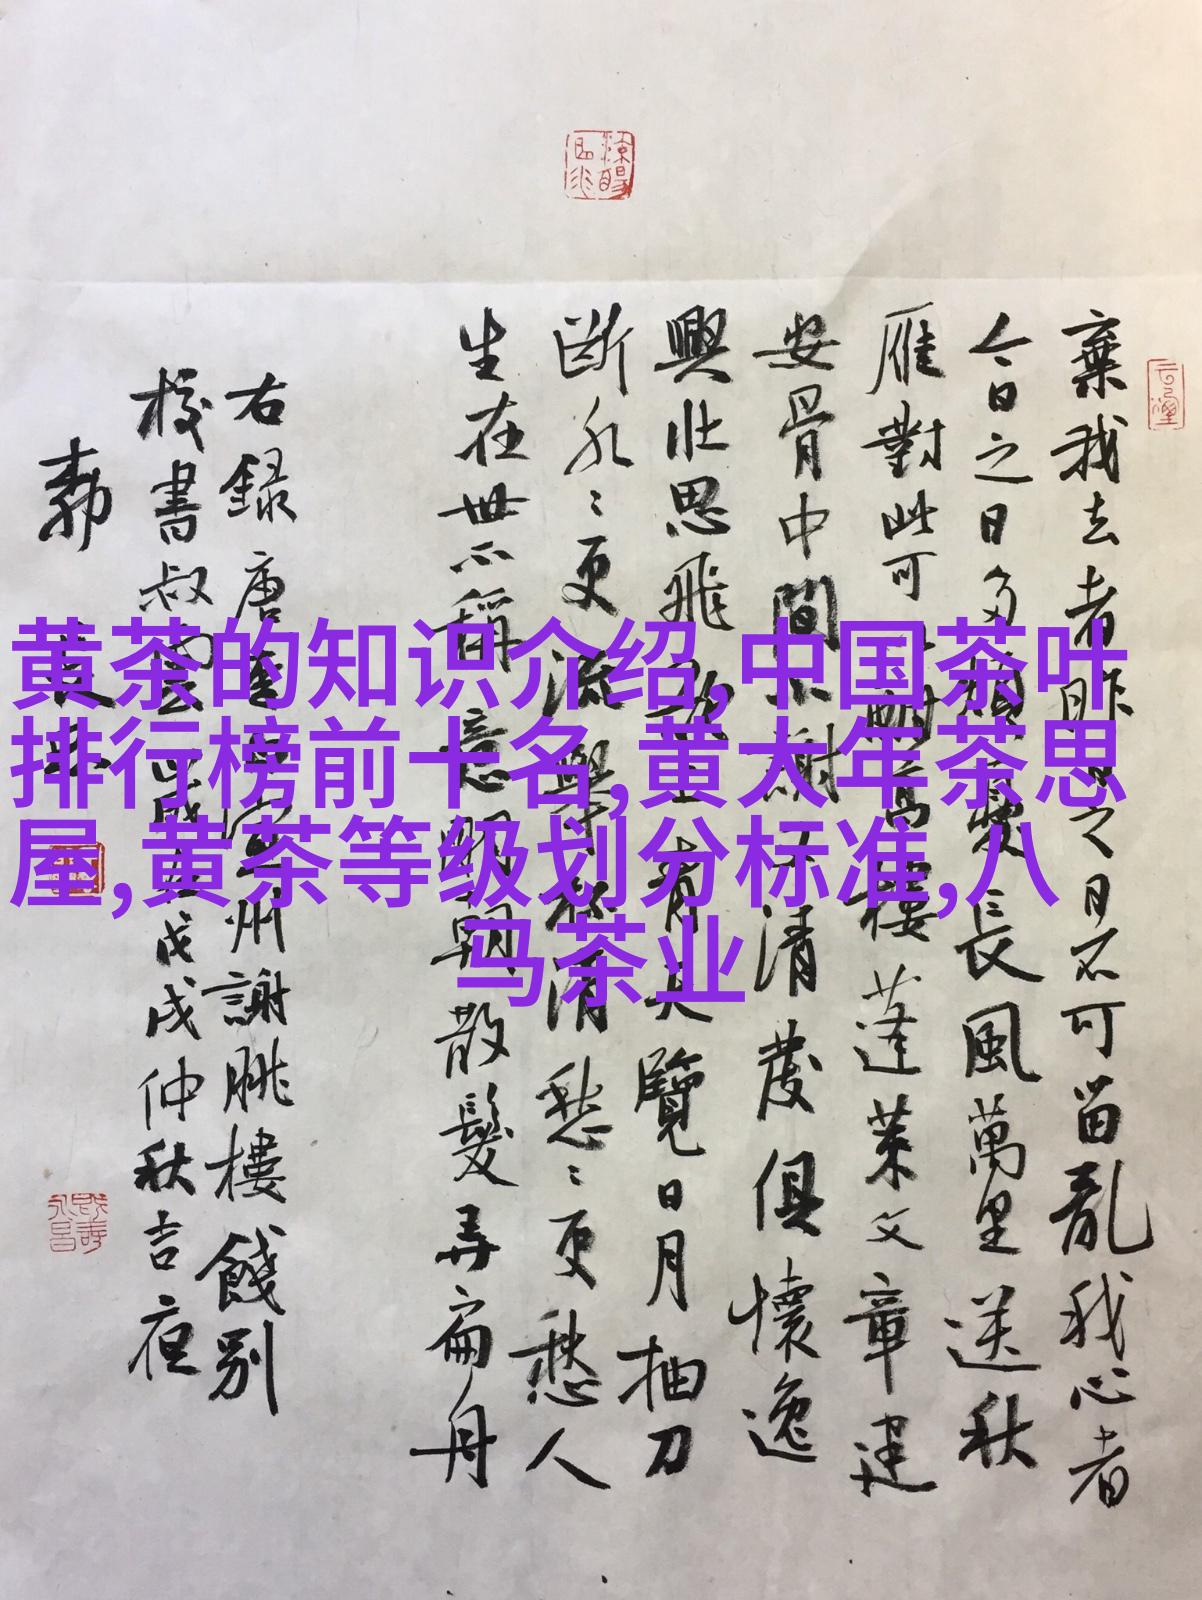 黄茶的知识介绍,中国茶叶
排行榜前十名,黄大年茶思
屋,黄茶等级划分标准,八
马茶业
棄我去者昨日之日不可留亂我心者
今日之日多煩憂長風萬里送秋
雁對此可酣高樓蓬萊文章建
安骨中間小謝又清發俱懷逸
興壯思飛欲上青天覽日月抽刀
斷水〻更流舉杯消愁〻更愁人
生在世不稱意明朝散髮弄扁舟
右録唐宣州謝朓樓餞別
校書叔雲歲在戊戌仲秋吉夜